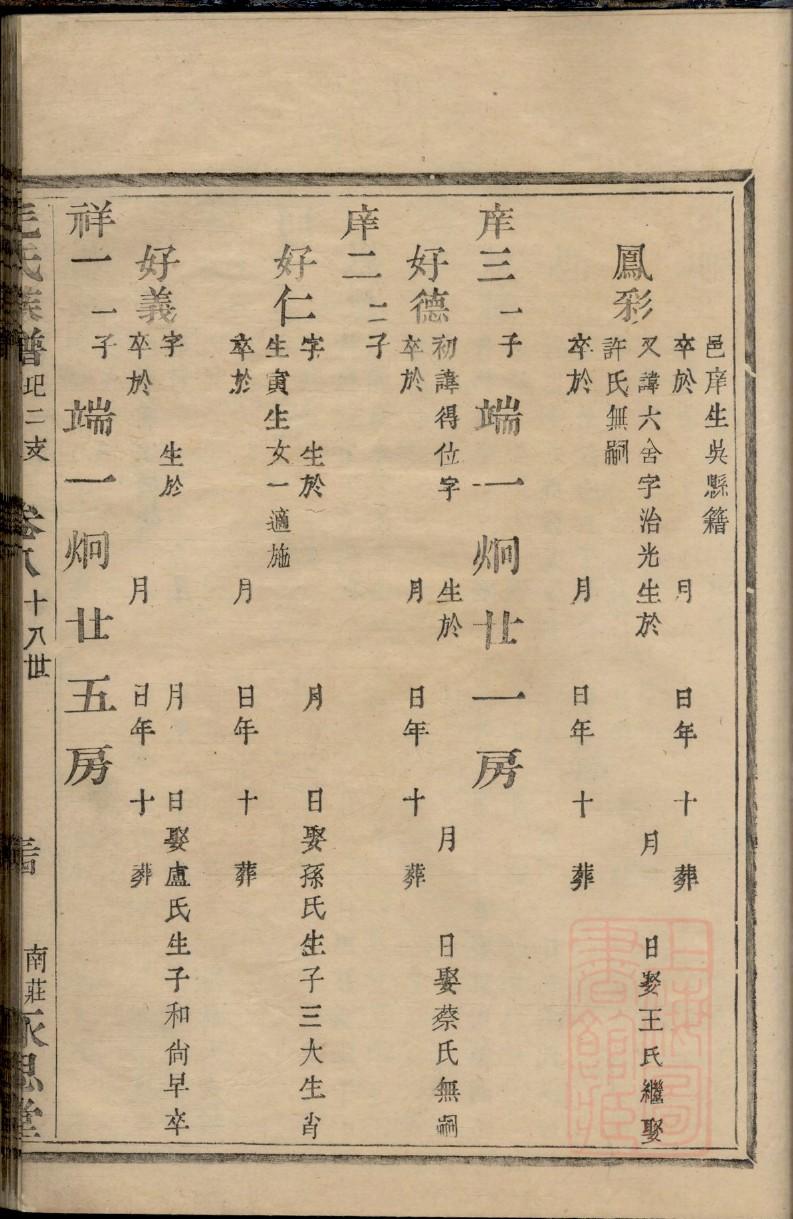 邑庠生吳縣籍
卒於 月 日年 十 葬
鳳彩
又諱六舍字治光生於 月 日娶王氏繼娶
許氏無嗣
卒於 月 日年 十 葬
庠三 一子 端一炯廿一房
好德
初諱得位字 生於 月 日娶蔡氏無嗣
卒於 月 日年 十 葬
庠二 二子
好仁
字 生於 月 日娶孫氏生子三大生肖
生寅生女一適施
卒於 月 日年 十 葬
好義
字 生於 月 日娶盧氏生子和尙早卒
卒於 月 日年 十 葬
祥一 一子 端一炯廿五房
毛氏族譜 圯二支 卷八 十八世 南莊永思堂